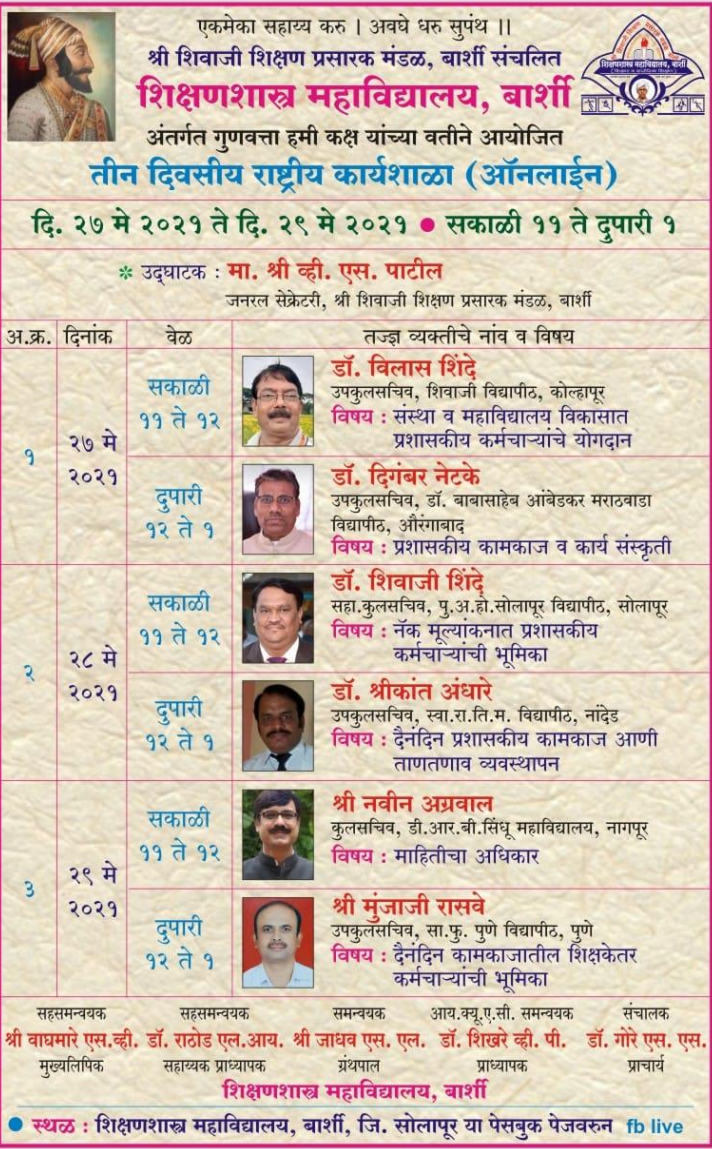 एकमेका सहाय्य करु । अवघे धरु सुपंथ ।।
श्री शिवाजी शिक्षण प्रसारक मंडळ, बार्शी संचलित
शिक्षणशास्त्र महाविद्यालय, बार्शी
शिक्षणशास्त्र महाविद्यालय, बार्शी
अंतर्गत गुणवत्ता हमी कक्ष यांच्या वतीने आयोजित
तीन दिवसीय राष्ट्रीय कार्यशाळा (ऑनलाईन)
दि. २७ मे २०२१ ते दि. २९ मे २०२१ ● सकाळी ११ ते दुपारी १
* उद्घाटक : मा. श्री व्ही. एस. पाटील
जनरल सेक्रेटरी, श्री शिवाजी शिक्षण प्रसारक मंडळ, बार्शी
अ.क्र. दिनांक वेळ तज्ज्ञ व्यक्तीचे नांव व विषय
१
२७ मे
२०२१
सकाळी
११ ते १२
डॉ. विलास शिंदे
उपकुलसचिव, शिवाजी विद्यापीठ, कोल्हापूर
विषय : संस्था व महाविद्यालय विकासात
प्रशासकीय कर्मचाऱ्यांचे योगदान
दुपारी
१२ ते १
डॉ. दिगंबर नेटके
उपकुलसचिव, डॉ. बाबासाहेब आंबेडकर मराठवाडा
विद्यापीठ, औरंगाबाद
विषय : प्रशासकीय कामकाज व कार्य संस्कृती
२
२८ मे
२०२१
सकाळी
११ ते १२
डॉ. शिवाजी शिंदे
सहा.कुलसचिव, पु.अ.हो.सोलापूर विद्यापीठ, सोलापूर
विषय : नॅक मूल्यांकनात प्रशासकीय
कर्मचाऱ्यांची भूमिका
दुपारी
१२ ते १
डॉ. श्रीकांत अंधारे
उपकुलसचिव, स्वा.रा.ति.म. विद्यापीठ, नांदेड
विषय : दैनंदिन प्रशासकीय कामकाज आणी
ताणतणाव व्यवस्थापन
३
२९ मे
२०२१
सकाळी
११ ते १२
श्री नवीन अग्रवाल
कुलसचिव, डी.आर.बी.सिंधू महाविद्यालय, नागपूर
विषय : माहितीचा अधिकार
दुपारी
१२ ते १
श्री मुंजाजी रासवे
उपकुलसचिव, सा.फु. पुणे विद्यापीठ, पुणे
विषय : दैनंदिन कामकाजातील शिक्षकेतर
कर्मचाऱ्यांची भूमिका
सहसमन्वयक सहसमन्वयक समन्वयक आय.क्यू.ए.सी. समन्वयक संचालक
श्री वाघमारे एस.व्ही. डॉ. राठोड एल.आय. श्री जाधव एस. एल. डॉ. शिखरे व्ही. पी. डॉ. गोरे एस. एस.
मुख्यलिपिक सहाय्यक प्राध्यापक ग्रंथपाल प्राध्यापक प्राचार्य
शिक्षणशास्त्र महाविद्यालय, बार्शी
● स्थळ : शिक्षणशास्त्र महाविद्यालय, बार्शी, जि. सोलापूर या पेसबुक पेजवरुन fb live